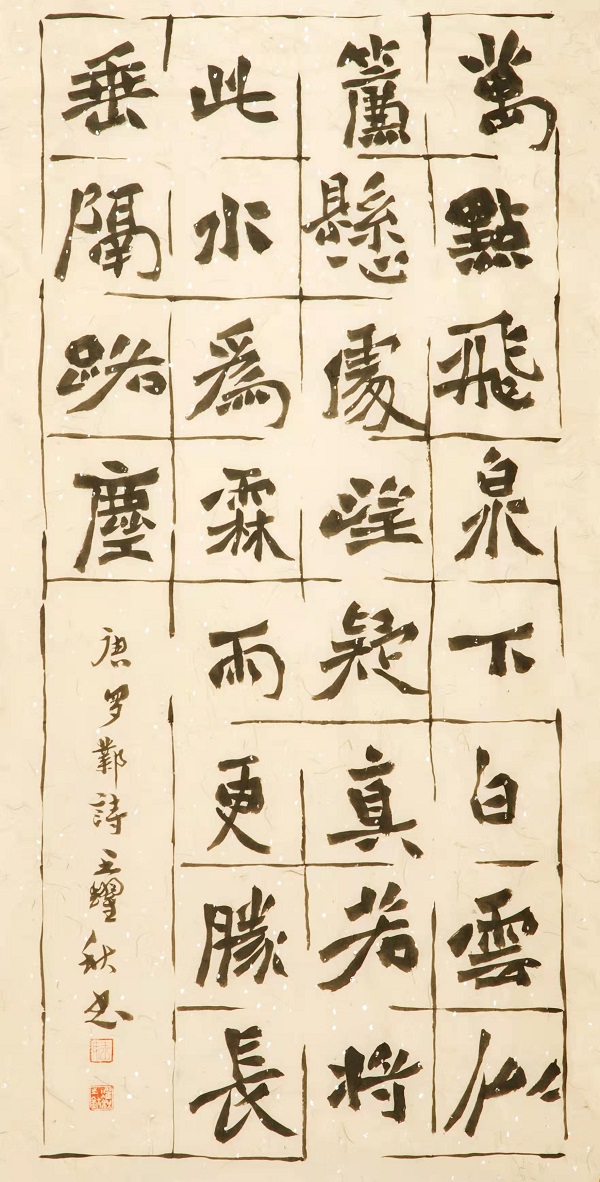 萬點飛泉下白雲似
簾懸處望疑真若將
此水爲霖雨更勝長
垂隔路塵
唐罗鄴詩王耀秋书